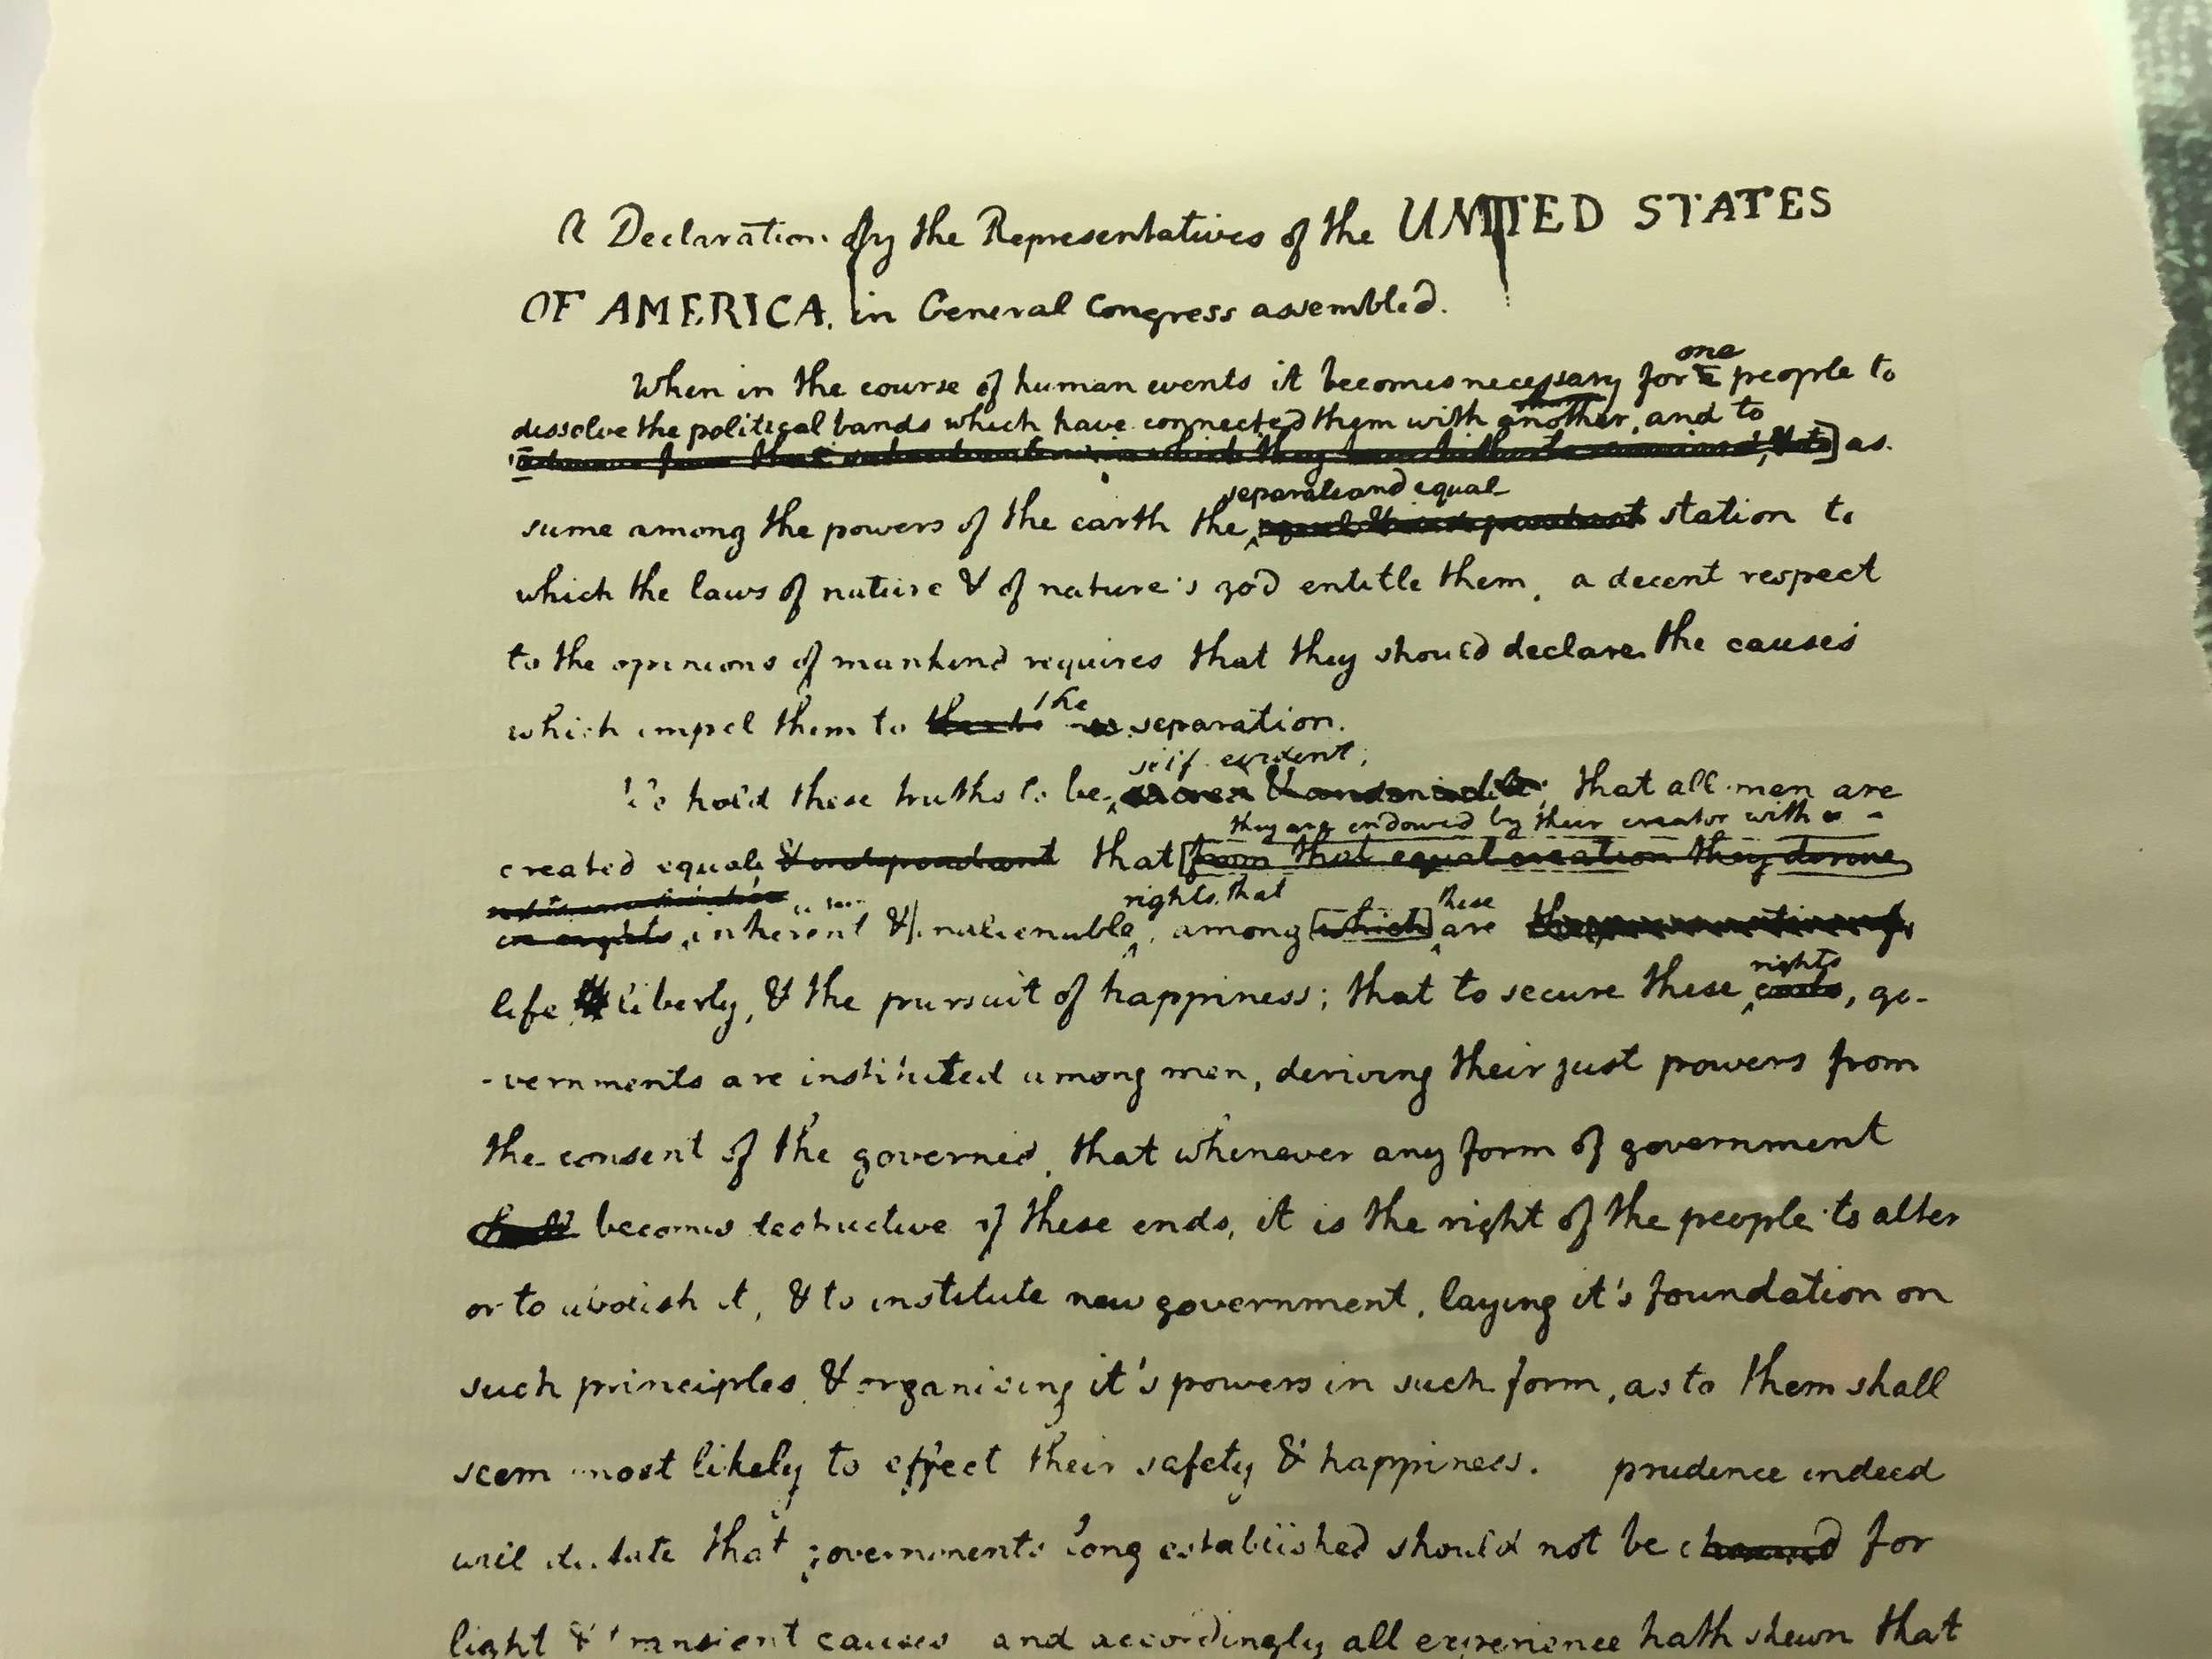 A Declaration by the Representatives of the UNITED STATES
OF AMERICA, in General Congress assembled.
one
When in the course of human events it becomes necessary for a people to
dissolve the political bands which have connected them with another, and to
as-
separate and equal
sume among the powers of the earth the station to
which the laws of nature & of nature's god entitle them, a decent respect
to the opinions of mankind requires that they should declare the causes
the
which impel them to separation.
self evident;
We hold these truths to be that all men are
they are endowed by their creator with
created equal & independant that [from that equal creation they derive
rights; that these
inherent & inalienable, among [which] are
rights
life liberty, & the pursuit of happiness; that to secure these ends, go-
-vernments are instituted among men, deriving their just powers from
the consent of the governed, that whenever any form of government
becomes destructive of these ends, it is the right of the people to alter
or to abolish it, & to institute new government, laying it's foundation on
such principles & organising it's powers in such form, as to them shall
seem most likely to effect their safety & happiness. prudence indeed
will dictate that governments long established should not be changed for
light & transient causes and accordingly all experience hath shewn that